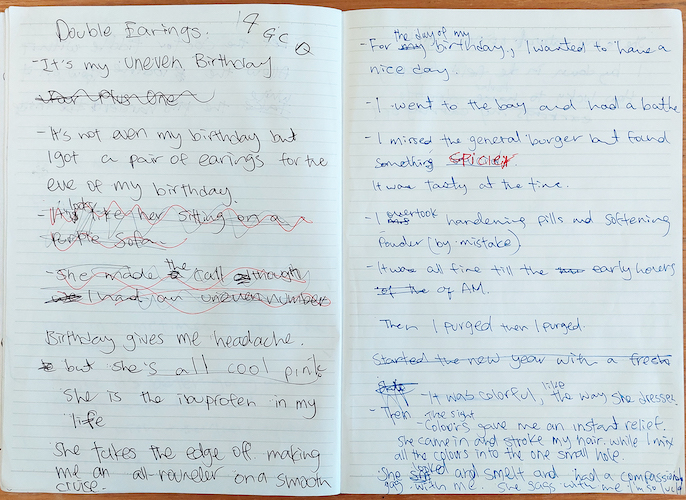 Double Earings.
- It's my uneven Birthday
- It's not even my birthday but
I got a pair of earings for the
eve of my birthday.
like her sitting on a
purple sofa.
- She made the call although
I had an uneven number
Birthday gives me headache.
but she's all cool pink.
She is the ibuprofen in my
life
She takes the edge of making
me an all-rounder on a smooth
cruise.
- For the day of my birthday, I wanted to have a
nice day.
- I went to the bay and had a bathe
- I missed the general burger but found
something SPICIEY
It was tasty at the time.
- I overtook handening pills and softening
powder (by mistake)
- It was all fine till the early hours
of AM.
Then I purged then I purged.
Started the new year with a fresh
- It was colorful, like the way she dresses
- Then The sight
- Colours gave me an instant relief.
She came in and stroke my hair while I mix
all the colours into the one small hole.
She and smelt and had a compassion
gag with me. She gags with me I'm so lucky